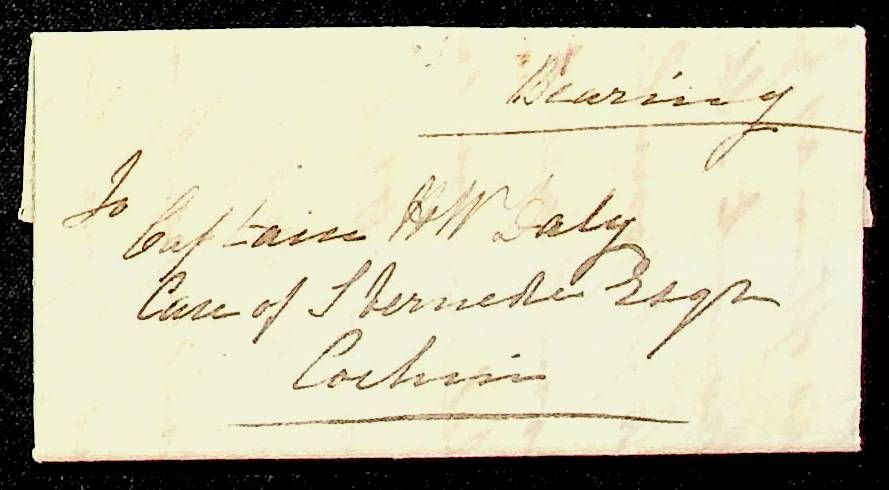 Bearing
To
Captain H W Daly
Care of S Vernede Esqr
Cochin